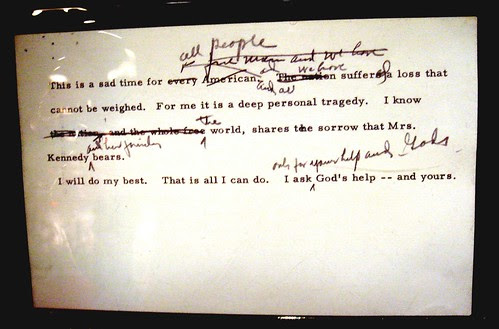 all people
free men and we have
This is a sad time for every American. The nation suffers a loss that
and all we have
cannot be weighed. For me it is a deep personal tragedy. I know
the nation, and the whole free the world, shares the sorrow that Mrs.
and her family
Kennedy bears.
only for your help and God's
I will do my best. That is all I can do. I ask God's help -- and yours.